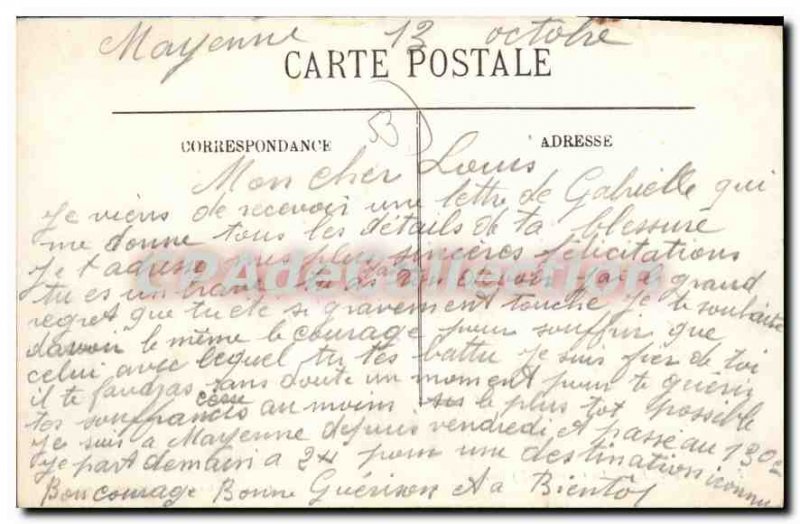 Mayenne 13 octobre
CARTE POSTALE
53
CORRESPONDANCE
ADRESSE
Mon cher Louis
Je viens de recevoir une lettre de Gabrielle qui
me donne tous les détails de ta blessure
Je t adresse mes plus sincères félicitations
tu es un brave tu as ton devoir j'ai le grand
regret que tu ete si gravement touche Je te souhaite
davoir le même le courage pour souffrir que
celui avec lequel tu tes battu Je suis fier de toi
il te faudras sans doute un moment pour te guérir
cesse
tes souffrances au moins le plus tot possible
Je suis a Mayenne depuis vendredi et passe au 130e
Je part demain a 2H pour une destination inconnu
Bon courage Bonne Guérison et a Bientôt
CPAdeCollection